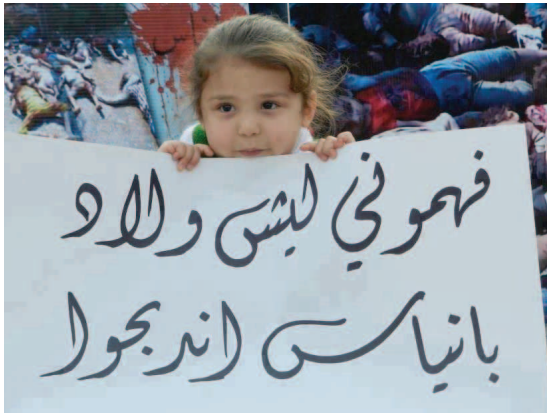 فهموني ليش ولاد
بانياس اندبحوا